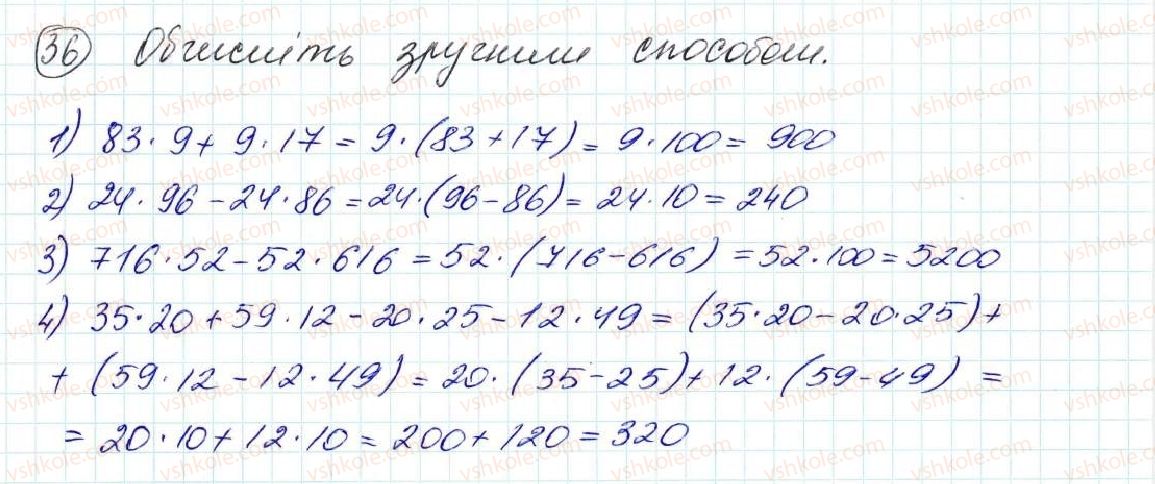 36 Обчисліть зручним способом.
1) 83·9+9·17=9·(83+17)=9·100=900
2) 24·96-24·86=24·(96-86)=24·10=240
3) 716·52-52·616=52·(716-616)=52·100=5200
4) 35·20+59·12-20·25-12·49=(35·20-20·25)+
+(59·12-12·49)=20·(35-25)+12·(59-49)=
=20·10+12·10=200+120=320